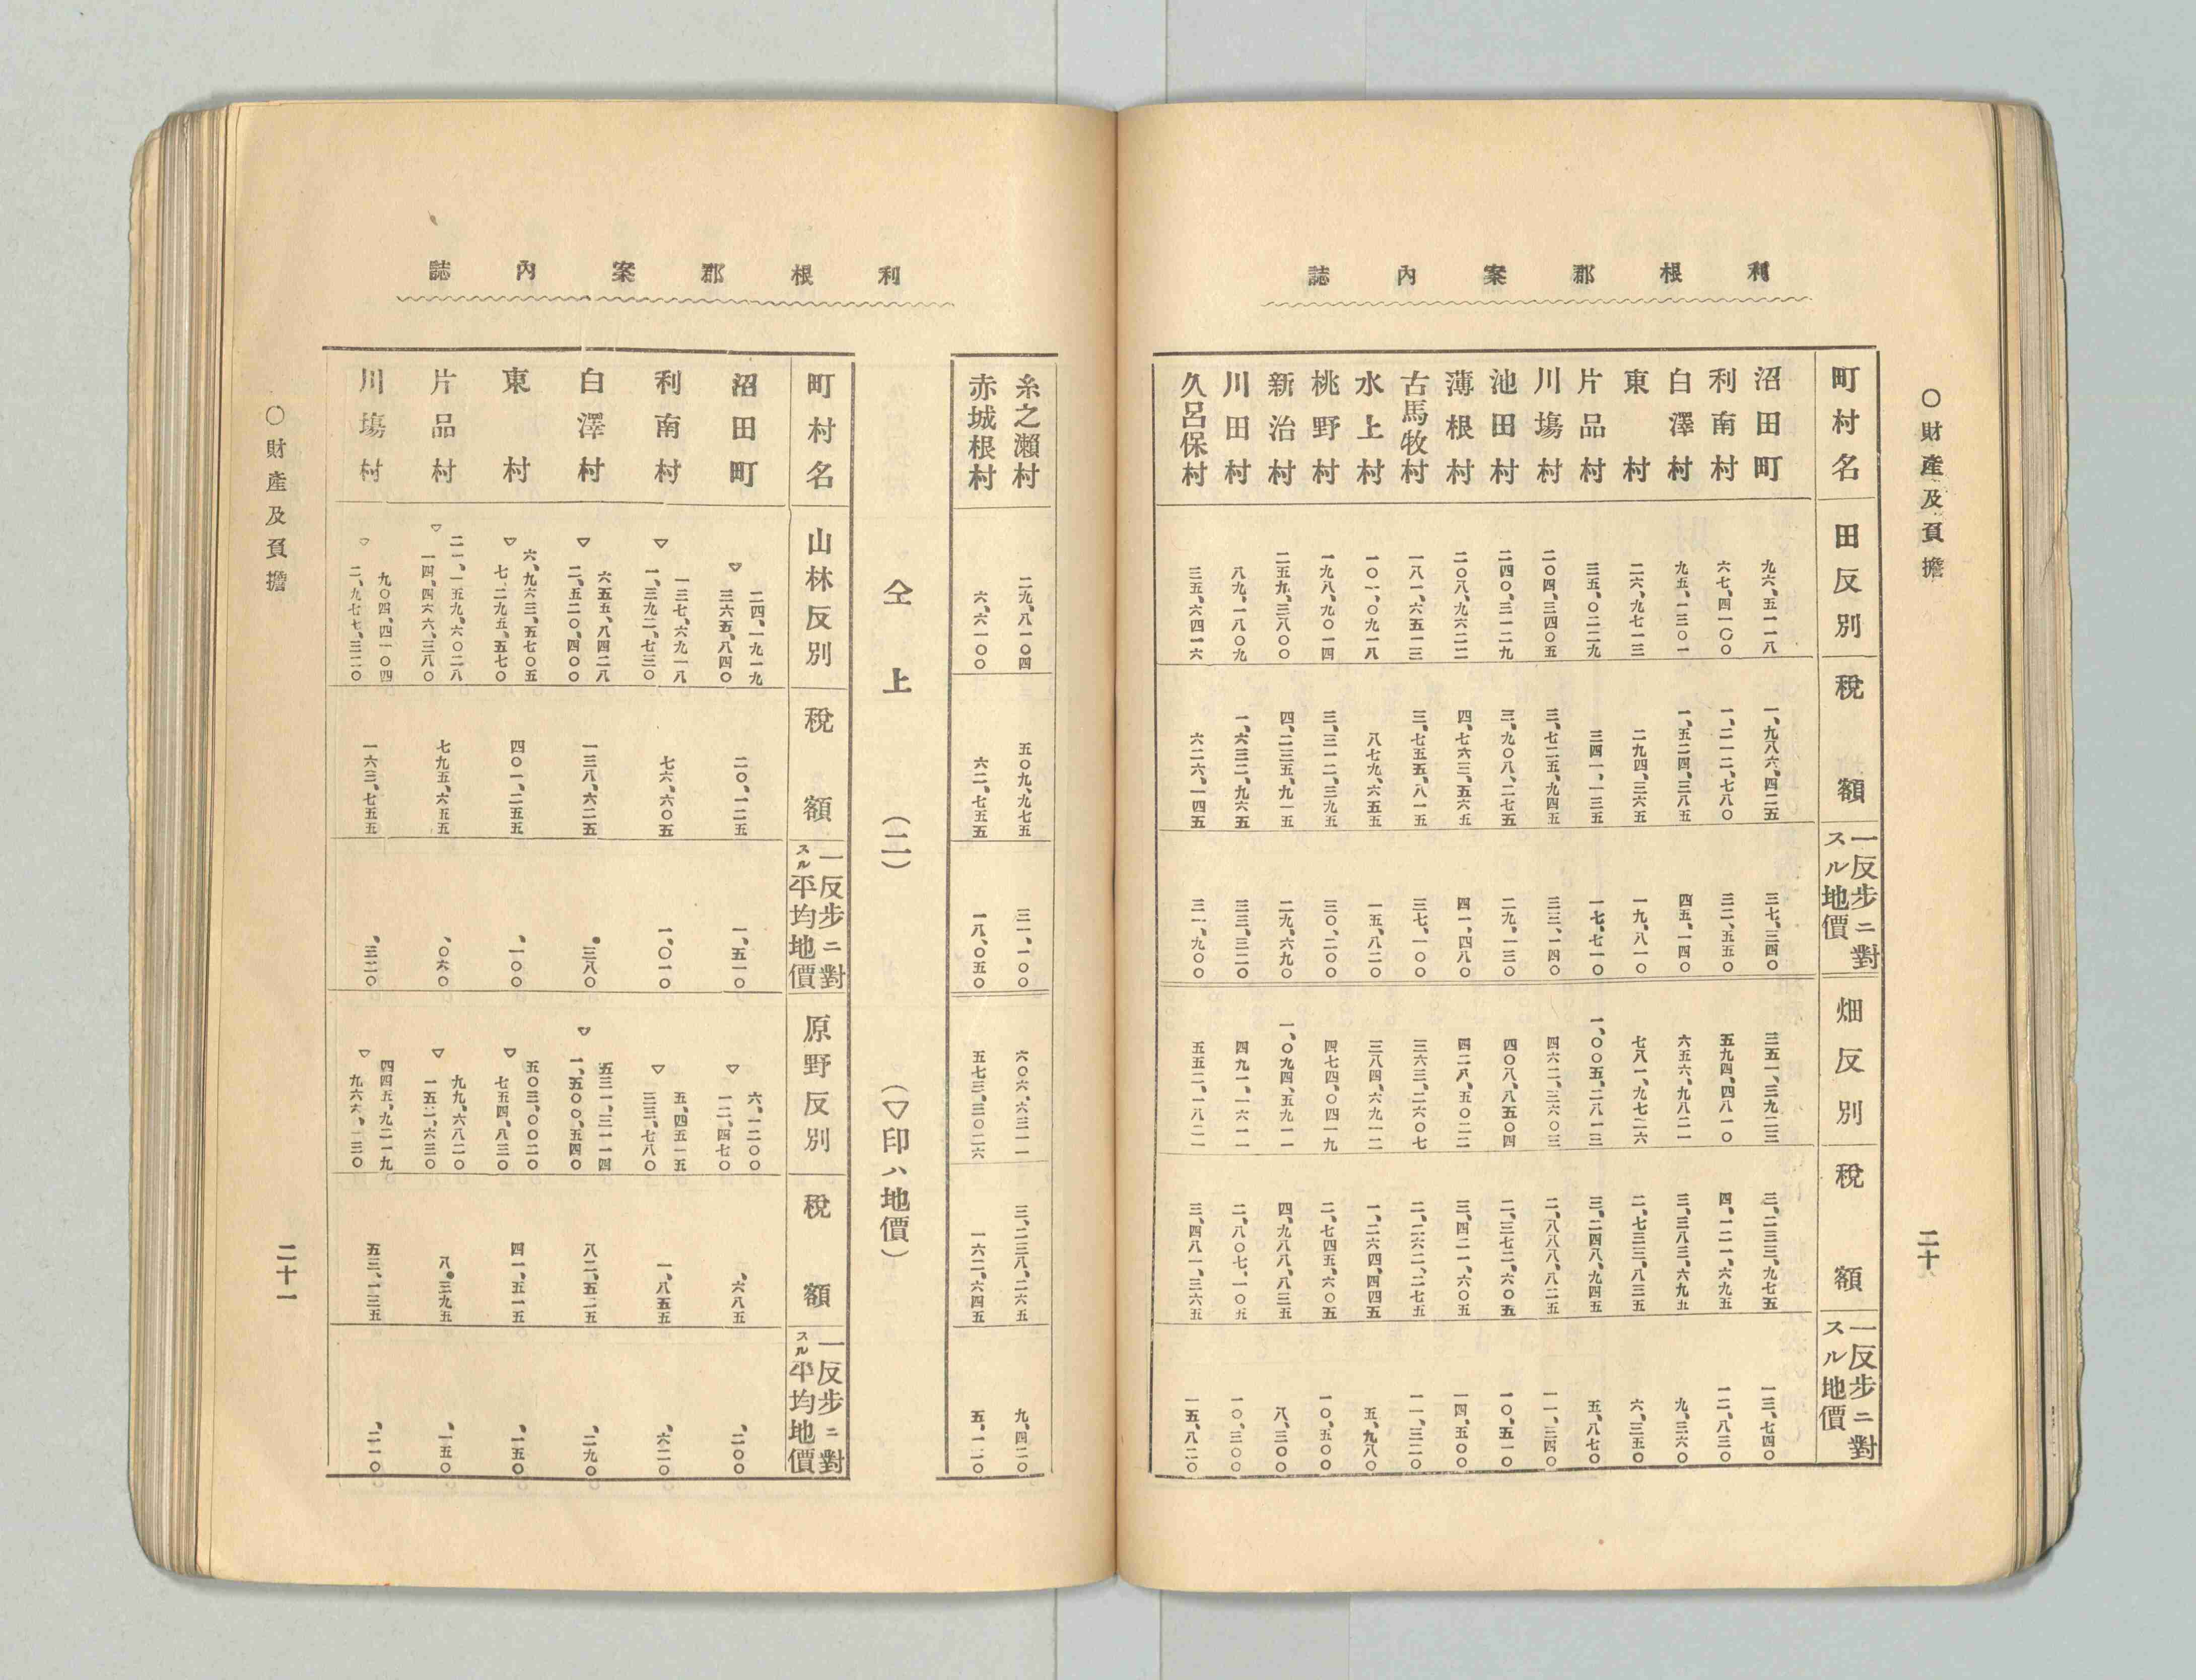 利根郡案內誌
〇財產及負擔
二十
町村名 田反別 稅額 一反步ニ對スル地價 畑反別 稅額 一反步ニ對スル地價
沼田町 九六、五一一八 一、九八六、四二五 三七、三四〇 三五一、三九二三 三、二三三、九七五 一三、七四〇
利南村 六七、四一〇〇 一、二一二、七八〇 三二、五五〇 五九四、四八一〇 四、一二一、六九五 一二、八三〇
白澤村 九五、一三〇一 一、五二四、三八五 四五、一四〇 六五六、九八二一 三、三八三、六九五 九、三六〇
東村 二六、九七一三 二九四、三六五 一九、八一〇 七八一、九七二六 二、七三三、八三五 六、三五〇
片品村 三五、〇二二九 三四一、一三五 一七、七一〇 一、〇〇五、二八一三 三、二四八、九四五 五、八七〇
川塲村 二〇四、三四〇五 三、七二五、九四五 三三、一四〇 四六二、三六〇三 二、八八八、八二五 一一、三四〇
池田村 二四〇、三一二九 三、九〇八、二七五 二九、一三〇 四〇八、八五〇四 二、三七二、六〇五 一〇、五一〇
薄根村 二〇八、九六二二 四、七六三、五六五 四一、四八〇 四二八、五〇二二 三、四二一、六〇五 一四、五〇〇
古馬牧村 一八一、六五一三 三、七五五、八一五 三七、一〇〇 三六三、二六〇七 二、二六二、二七五 一一、三二〇
水上村 一〇一、〇九一八 八七九、六五五 一五、八二〇 三八四、六九一二 一、二六四、四四五 五、九八〇
桃野村 一九八、九〇一四 三、三一二、三九五 三〇、二〇〇 四七四、〇四一九 二、七四五、六〇五 一〇、五〇〇
新治村 二五九、三八〇〇 四、二三五、九一五 二九、六九〇 一、〇九四、五九一一 四、九八八、八三五 八、三〇〇
川田村 八九、一八〇九 一、六三二、九六五 三三、三二〇 四九一、一六一一 二、八〇七、一〇五 一〇、三〇〇
久呂保村 三五、六四一六 六二六、一四五 三一、九〇〇 五五二、一八二一 三、四八一、三六五 一五、八二〇
利根郡案內誌
糸之瀨村 二九、八一〇四 五〇九、九七五 三一、一〇〇 六〇六、六三一一 三、二三八、二六五 九、四二〇
赤城根村 六、六一〇〇 六二、七五五 一八、〇五〇 五七三、三〇二六 一六二、六四五 五、一二〇
仝上 (二) (▽印ハ地價)
町村名 山林反別 稅額 一反步ニ對スル平均地價 原野反別 稅額 一反步ニ對スル平均地價
沼田町 二四、一九一九 ▽三六五、八四〇 二〇、一二五 一、五一〇 六、一二〇〇 ▽一二、四七〇 、六八五 、二〇〇
利南村 一三七、六九一八 ▽一、三九二、七三〇 七六、六〇五 一、〇一〇 五、四五一五 ▽三三、七八〇 一、八五五 、六二〇
白澤村 六五五、八四二八 ▽二、五二〇、四〇〇 一三八、六二五 、三八〇 五三一、三一一四 ▽一、五〇〇、五四〇 八二、五二五 、二九〇
東村 六、九六三、五七〇五 ▽七、二九五、五七〇 四〇一、二五五 、一〇〇 五〇三、〇〇二〇 ▽七五四、八三〇 四一、五一五 、一五〇
片品村 二一、一五九、六〇二八 ▽一四、四六六、三八〇 七九五、六五五 、〇六〇 九九、六八二〇 ▽一五二、六三〇 八、三九五 、一五〇
川塲村 九〇四、四一〇四 ▽二、九七七、三二〇 一六三、七五五 、三二〇 四四五、九二一九 ▽九六六、一三〇 五三、一三五 、二一〇
〇財產及負擔
二十一